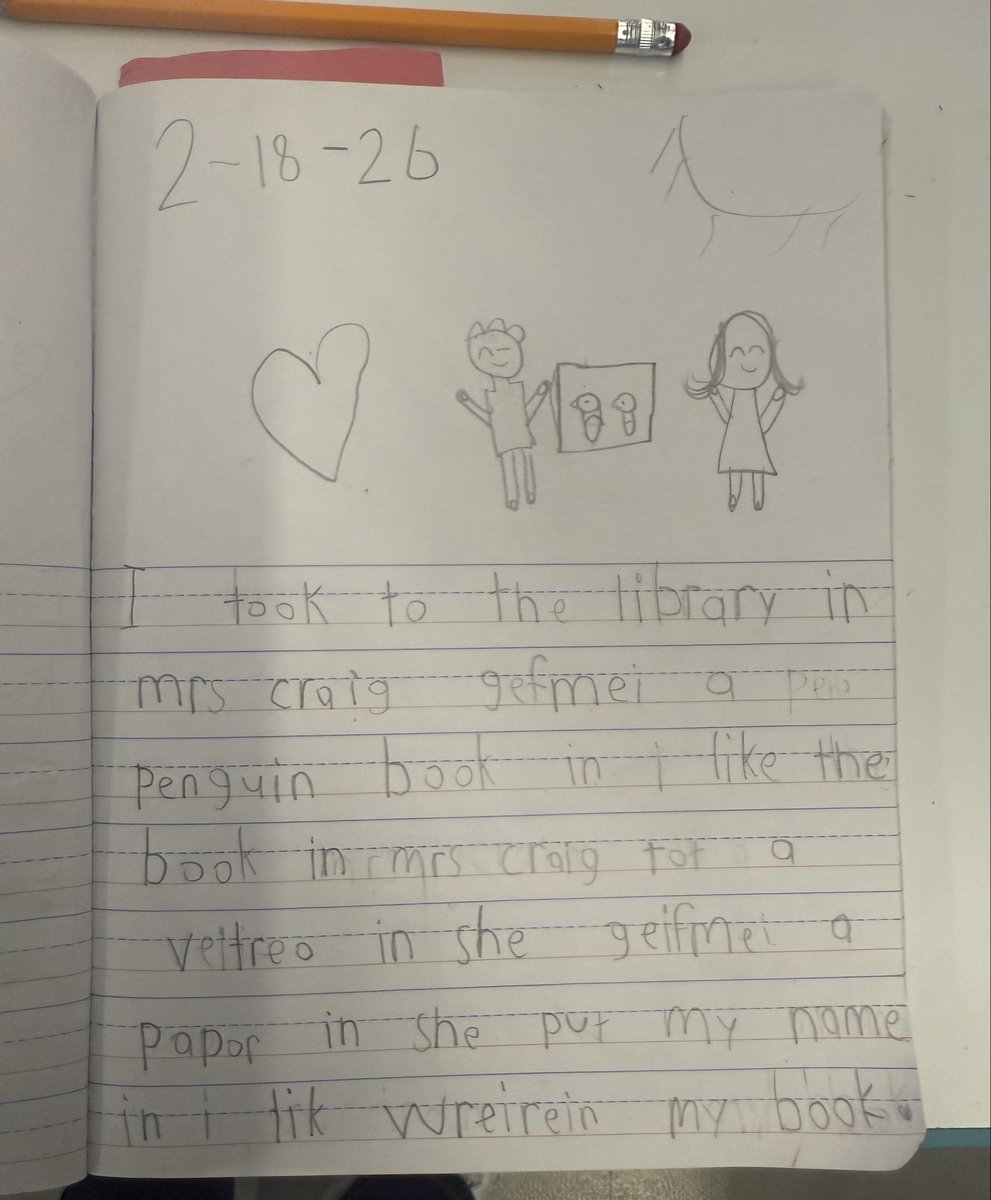 2-18-26
I took to the library in
mrs craig gefmei a pen
penguin book in i like the
book in mrs craig tot a
veitreo in she geifmei a
papor in she put my name
in i lik wreirein my book.